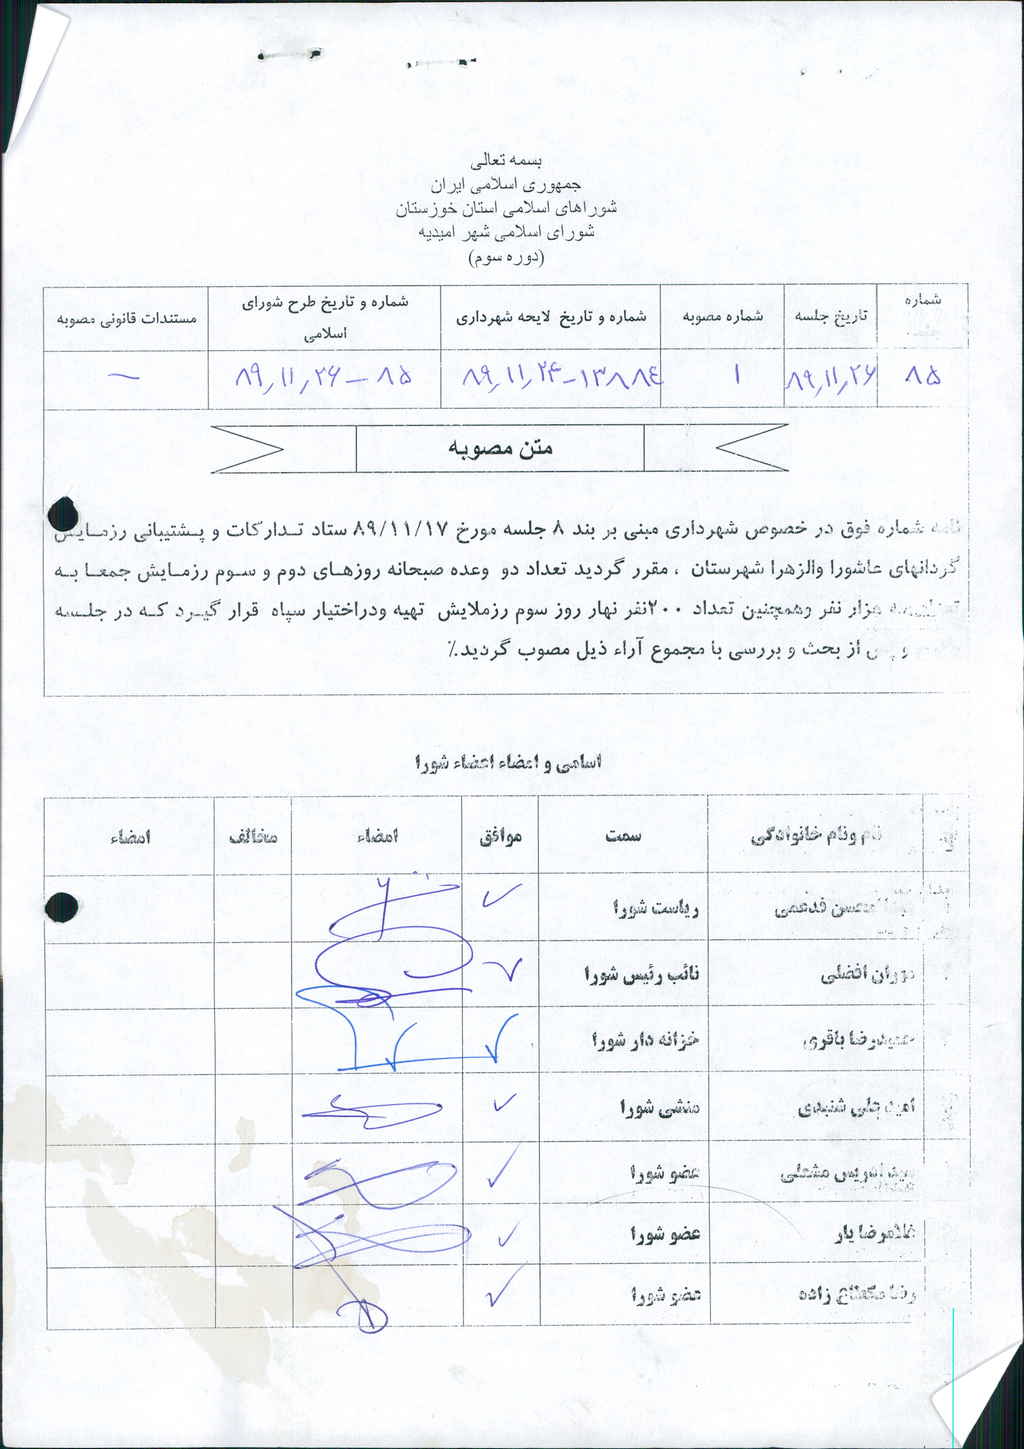 بسمه تعالی
جمهوری اسلامی ایران
شوراهای اسلامی استان خوزستان
شورای اسلامی شهر امیدیه
(دوره سوم)
شماره
تاریخ جلسه
شماره مصوبه
شماره و تاریخ لایحه شهرداری
شماره و تاریخ طرح شورای
اسلامی
مستندات قانونی مصوبه
۸۵
۸۹٫۱۱٫۲۶
۱
۸۹٫۱۱٫۲۴-۱۳۸۸۴
۸۹٫۱۱٫۲۶ – ۸۵
–
متن مصوبه
نامه شماره فوق در خصوص شهرداری مبنی بر بند ۸ جلسه مورخ ۸۹/۱۱/۱۷ ستاد تدارکات و پشتیبانی رزمایش
گردانهای عاشورا والزهرا شهرستان ، مقرر گردید تعداد دو وعده صبحانه روزهای دوم و سوم رزمایش جمعا به
هزار نفر وهمچنین تعداد ۲۰۰نفر نهار روز سوم رزملایش تهیه ودراختیار سپاه قرار گیرد که در جلسه
و پس از بحث و بررسی با مجموع آراء ذیل مصوب گردید.٪
اسامی و اعضاء اعضاء شورا
نام ونام خانوادگی
سمت
موافق
امضاء
مخالف
امضاء
ریاست شورا
افضلی
نائب رئیس شورا
حمیدرضا باقری
خزانه دار شورا
شنبدی
منشی شورا
عضو شورا
غلامرضا یار
عضو شورا
زاده
عضو شورا